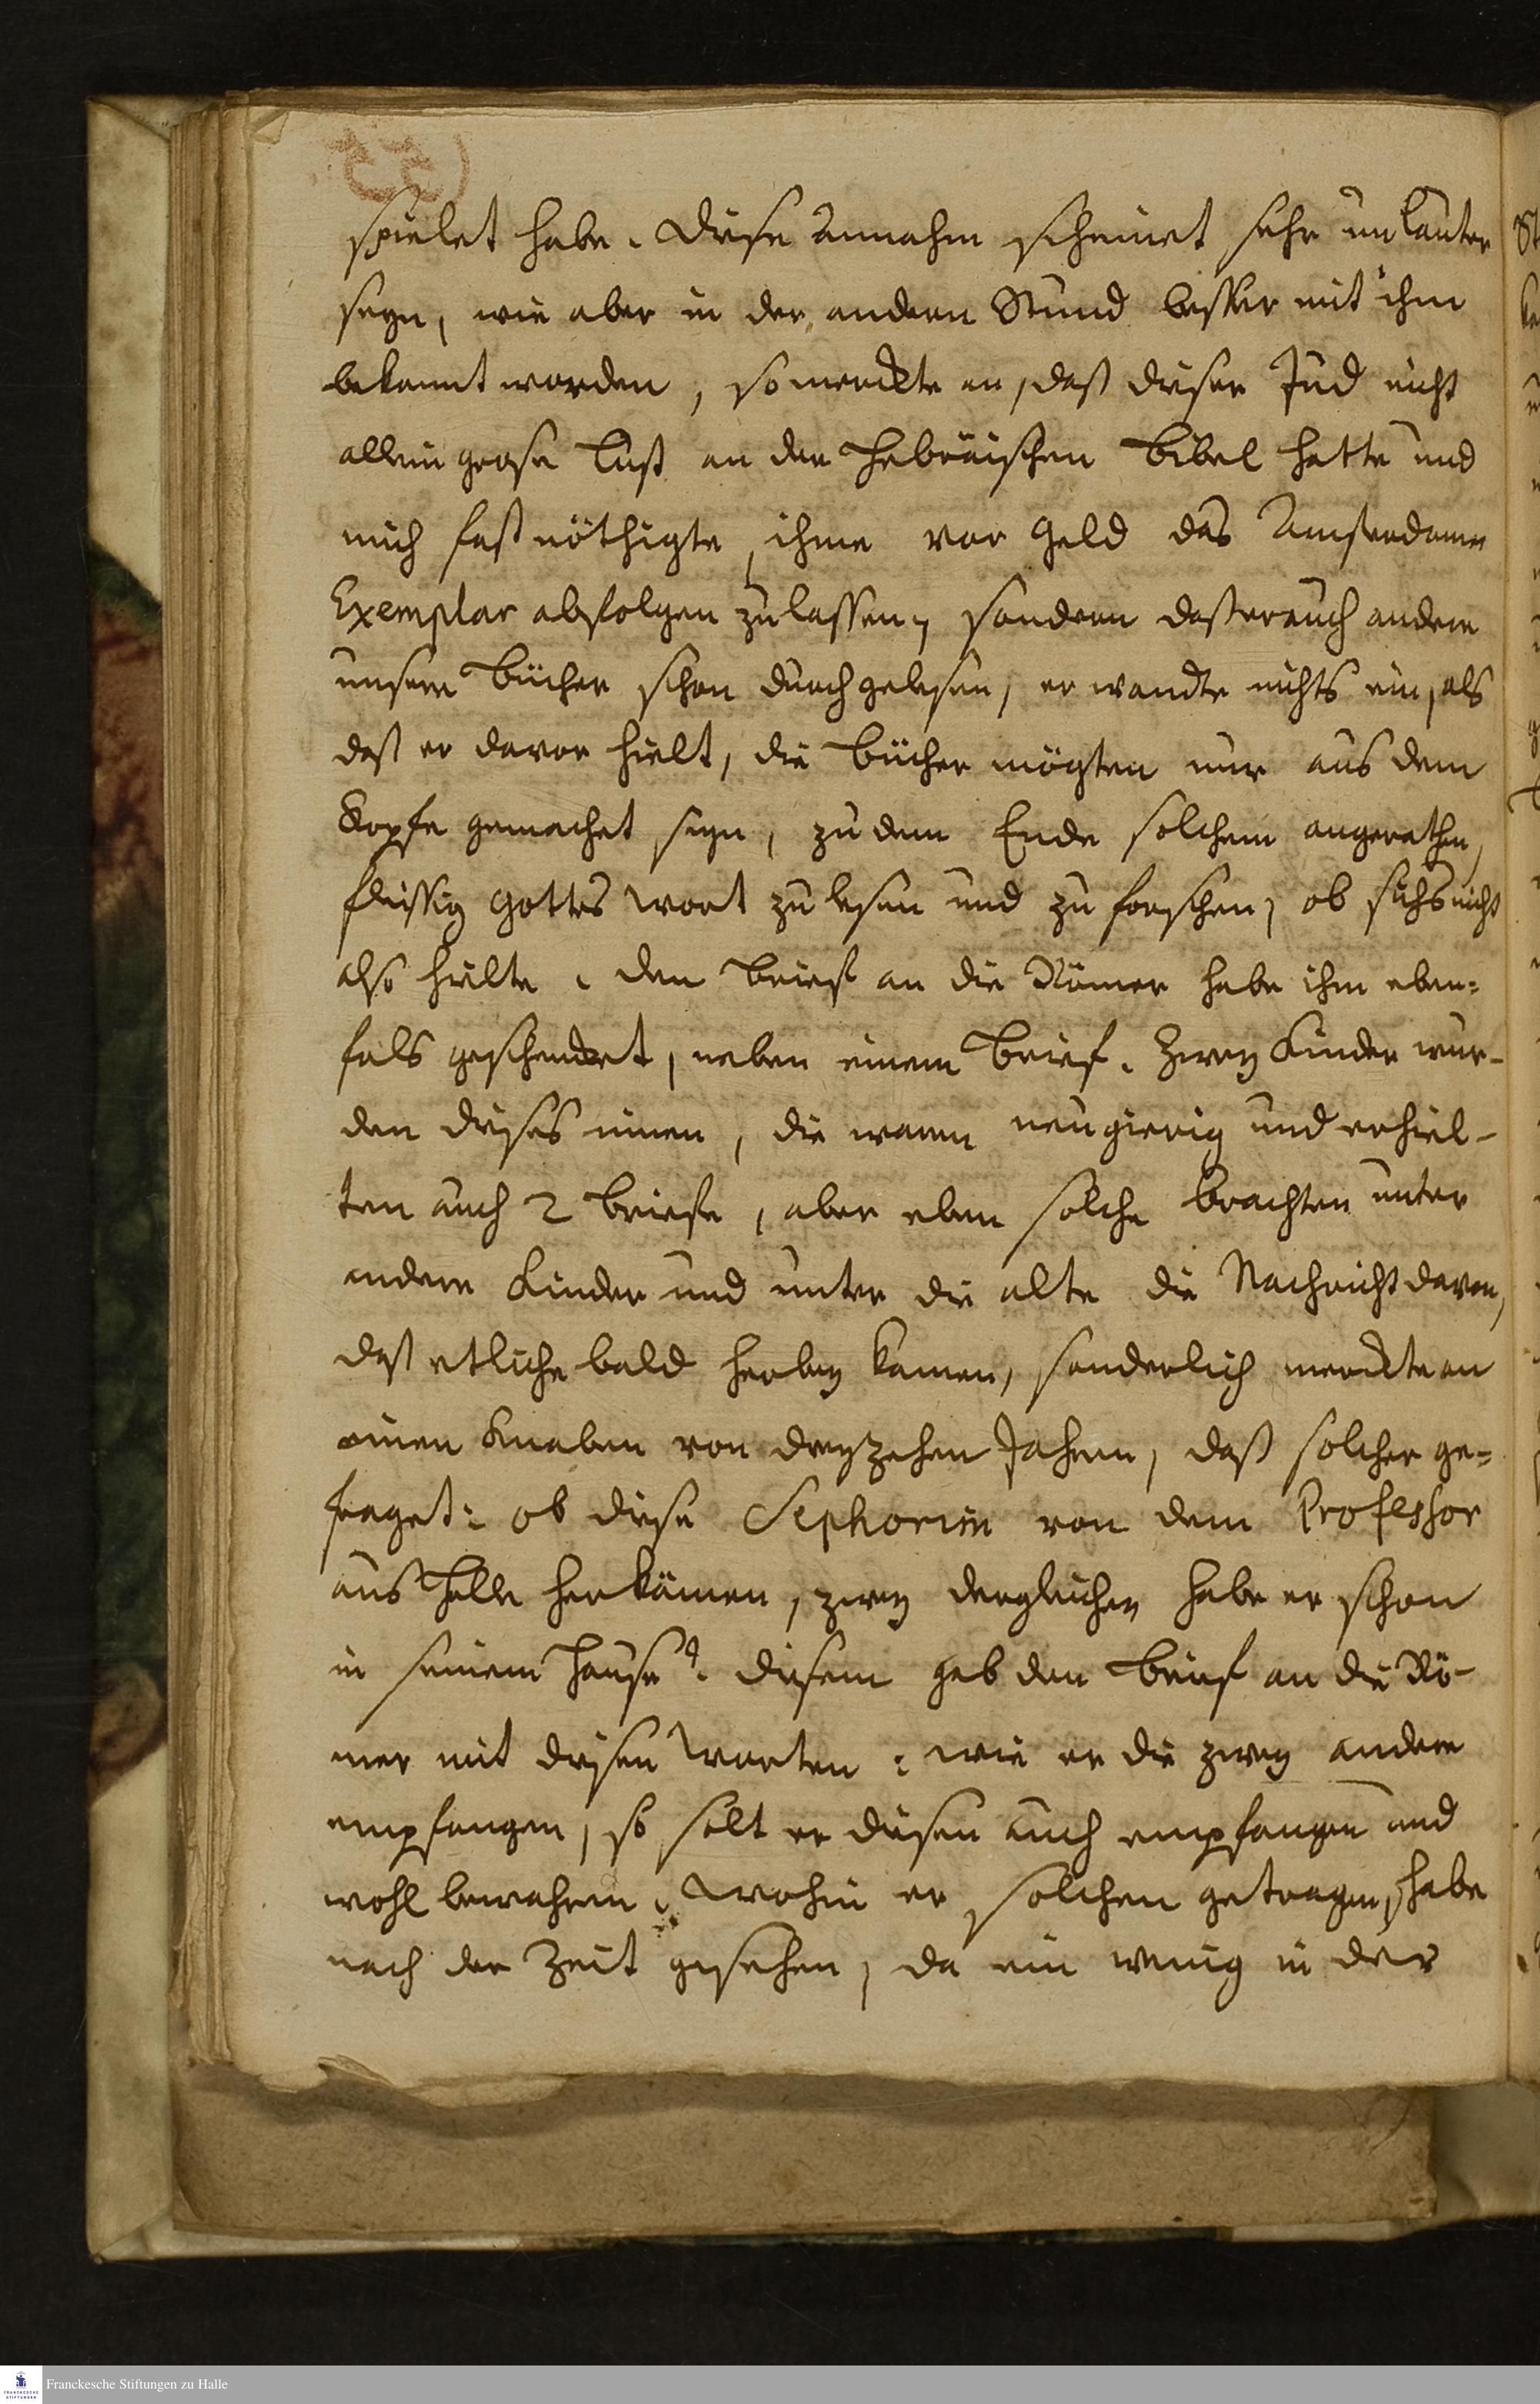 spielet habe. Diese Annahm scheinet sehr unlauter
seyn, wie aber in der andern Stund besser mit ihm
bekannt worden, so merckte an, daß dieser Jud nicht
allein grose Lust an der Hebräischen Bibel hatte und
mich fast nöthigte, ihme vor Geld das Amsterdamer
Exemplar abfolgen zulassen, sondern daß er auch andere
unsere Bücher schon durchgelesen, er wandte nichts ein, als
daß er davor hielt, die Bücher mögten nur aus dem
Kopfe gemachet seyn, zu dem Ende solchem angerathen,
fleissig Gottes Wort zu lesen und zu forschen, ob sichs nicht
also hielte. den Brief an die Römer habe ihm eben=
fals geschencket, neben einem Brief. Zwey Kinder wur-
den dieses innen, die waren neugierig und erhiel-
ten auch 2 Briefe, aber eben solche brachten unter
andere Kinder und unter die alte die Nachricht davon,
daß etliche bald herbey kamen, sonderlich merckte an
einen Knaben von dreyzehen Jahren, daß solcher ge=
fraget: ob diese Sephorim von dem Professor
aus Halle herkämen, zwey dergleichen habe er schon
in seinem Hause? diesem gab den Brief an die Rö-
mer mit diesen Worten: wie er die zwey andere
empfangen, so solt er diesen auch empfangen und
wohl bewahren. Wohin er solchen getragen, habe
nach der Zeit gesehen, da ein wenig in der
Franckesche Stiftungen zu Halle